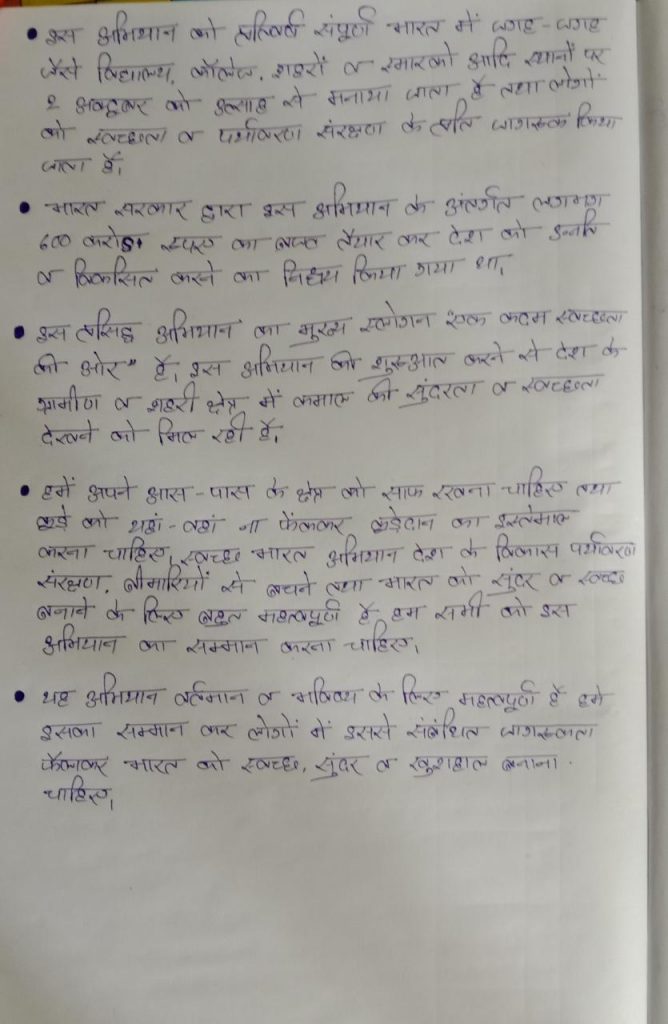 • इस अभियान को प्रतिवर्ष संपूर्ण भारत में जगह-जगह
जैसे विद्यालय, कॉलेज, शहरों व स्मारको आदि स्थानों पर
2 अक्टूबर को उत्साह से मनाया जाता है तथा लोगों
को स्वच्छता व पर्यावरण संरक्षण के प्रति जागरूक किया
जाता है।
• भारत सरकार द्वारा इस अभियान के अंतर्गत लगभग
600 करोड़ रूपए का बजट तैयार कर देश को उन्नति
व विकसित करने का निश्चय किया गया था।
• इस प्रसिद्ध अभियान का मुख्य स्लोगन एक कदम स्वच्छता
की ओर" है। इस अभियान की शुरुआत करने से देश के
ग्रामीण व शहरी क्षेत्र में कमाल की सुंदरता व स्वच्छता
देखने को मिल रही है।
• हमें अपने आस-पास के क्षेत्र को साफ रखना चाहिए तथा
कूड़े को यहां-वहां ना फेंककर कूड़ेदान का इस्तेमाल
करना चाहिए। स्वच्छ भारत अभियान देश के विकास पर्यावरण
संरक्षण, बीमारियों से बचने तथा भारत को सुंदर व स्वच्छ
बनाने के लिए बहुत महत्वपूर्ण है हम सभी को इस
अभियान का सम्मान करना चाहिए।
• यह अभियान वर्तमान व भविष्य के लिए महत्वपूर्ण है हमे
इसका सम्मान कर लोगों में इससे संबंधित जागरूकता
फैलाकर भारत को स्वच्छ, सुंदर व खुशहाल बनाना
चाहिए।